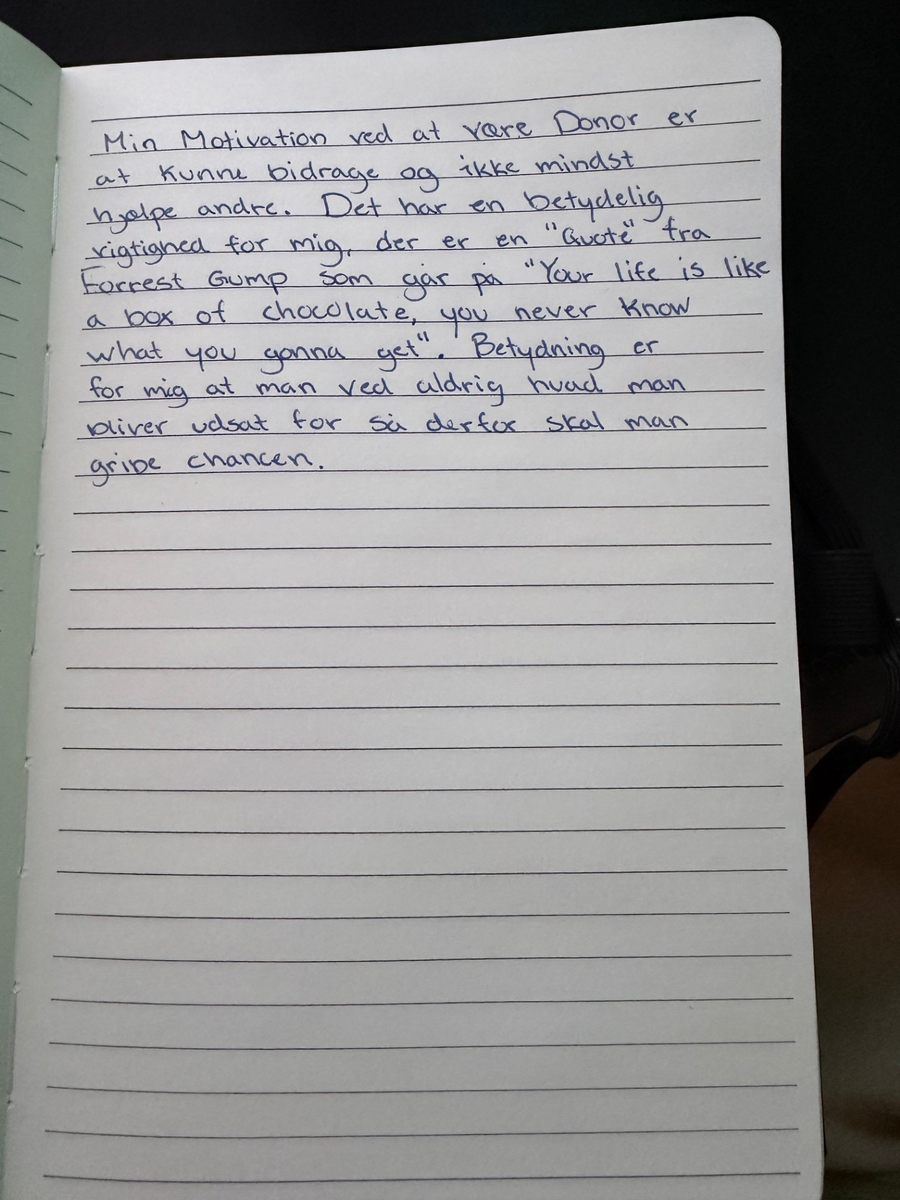 Min Motivation ved at være Donor er
at kunne bidrage og ikke mindst
hjælpe andre. Det har en betydelig
vigtighed for mig, der er en "Quote" fra
Forrest Gump som går på "Your life is like
a box of chocolate, you never know
what you gonna get". Betydning er
for mig at man ved aldrig hvad man
bliver udsat for så derfor skal man
gribe chancen.